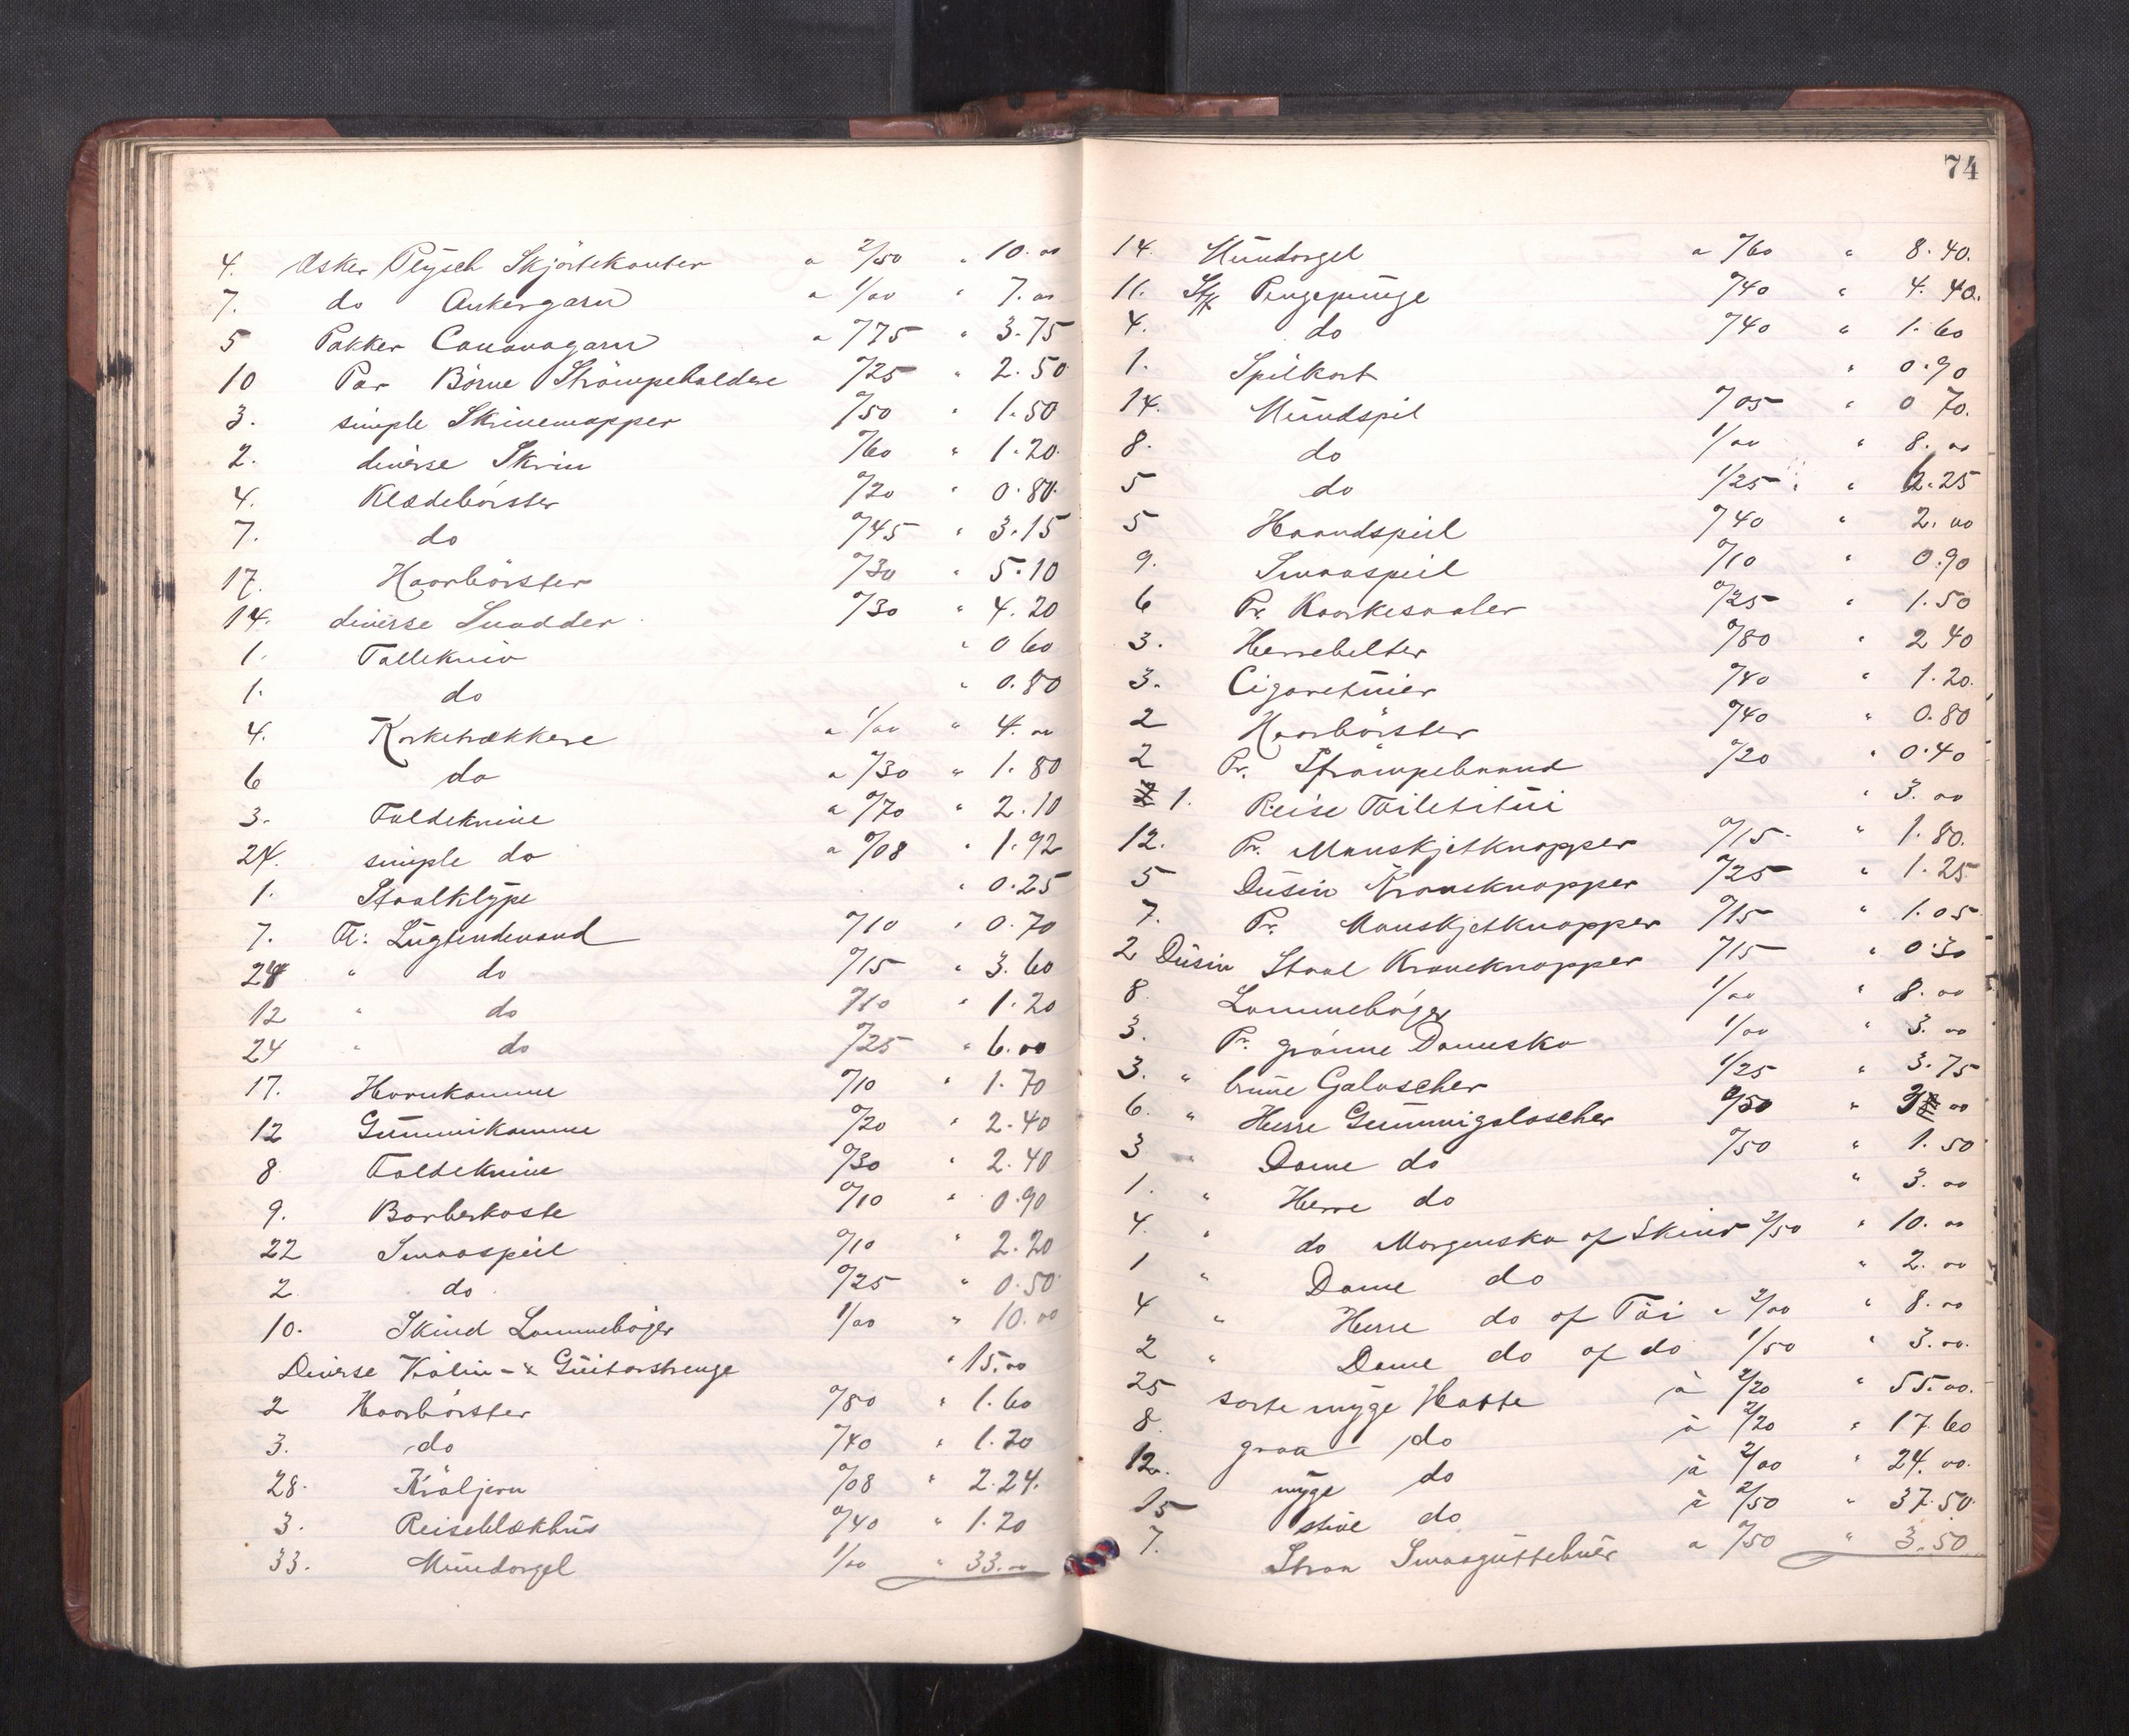 4. Æsker Plysch Skjörtekanter a 2/50 " 10.00
7. do Ankergarn a 1/00 " 7.00
5 Pakker Canavagarn a 0/75 " 3.75
10 Par Börne Strömpeholdere 0/25 " 2.50
3. simple Skrinemapper 0/50 " 1.50
2. diverse Skrin 0/60 " 1.20.
4. Klædebörster 0/20 " 0.80.
7. do 0/45 " 3.15
17. Haarbörster 0/30 " 5.10
14. diverse Snadder 0/30 " 4.20
1. Tallekniv " 0 60
1. do " 0.80
4. Korketrækkere a 1/00 " 4.00
6 do a 0/30 " 1.80
3. Foldeknive a 0/70 " 2.10
24. simple do a 0/08 " 1.92
1. Staalklype " 0.25
7. Fl: Lugtendevand 0/10 " 0.70
24 " do 0/15 " 3.60
12 " do 0/10 " 1.20
24 " do 0/25 " 6.00
17. Hornkamme 0/10 " 1.70
12 Gummikamme 0/20 " 2.40
8 Foldeknive 0/30 " 2.40
9. Barberkoste 0/10 " 0.90
22 Smaaspeil 0/10 " 2.20
2 do 0/25 " 0.50
10. Skind Lommebøger 1/00 " 10.00
Diverse Violin- & Guitarstrenge " 15.00
2 Haarbörster 0/80 " 1.60
3. do 0/40 " 1.20
28. Kröljern 0/08 " 2.24.
3. Reiseblækhus 0/40 " 1.20
33. Mundorgel 1/00 " 33.00
74
14. Mundorgel a 0/60 " 8.40.
11. Stk Pengepunge 0/40 " 4.40.
4. do 0/40 " 1.60
1. Spilkort " 0.90
14. Mundspil 0/05 " 0 70.
8. do 1/00 " 8.00
5 do 1/25 " 6.25
5 Haandspeil 0/40 " 2.00
9. Smaaspeil 0/10 " 0.90
6 Pr. Korkesaaler 0/25 " 1.50
3. Herrebelter 0/80 " 2 40
3. Cigaretuier 0/40 " 1.20.
2 Haarbörster 0/40 " 0.80
2 Pr. Strömpebaand 0/20 " 0.40
1. Reise Toiletitui " 3.00
12. Pr. Manskjetknapper 0/15 " 1.80.
5 Dusin Kraveknapper 0/25 " 1.25
7. Pr. Manskjetknapper 0/15 " 1.05
2 Dusin Staal Kraveknapper 0/15 " 0.30
8 Lommebøger 1/00 " 8.00
3. Pr. grönne Damesko 1/00 " 3.00
3. " brune Galoscher 1/25 " 3.75
6. " Herre Gummigaloscher 0/50 " 3 00
3 " Dame do 0/50 " 1.50
1. " Herre do " 3.00
4. " do Morgensko af Skind 2/50 " 10.00
1 " Dame do " 2.00
4 " Herre do af Töi a 2/00 " 8.00
2 " Dame do af do 1/50 " 3.00.
25 sorte myge Hatte à 2/20 " 55.00.
8. graa do à 2/20 " 17.60
12. myge do à 2/00 " 24.00.
15 stive do à 2/50 " 37.50.
7. Straa Smaaguttehuer a 0/50 " 3.50